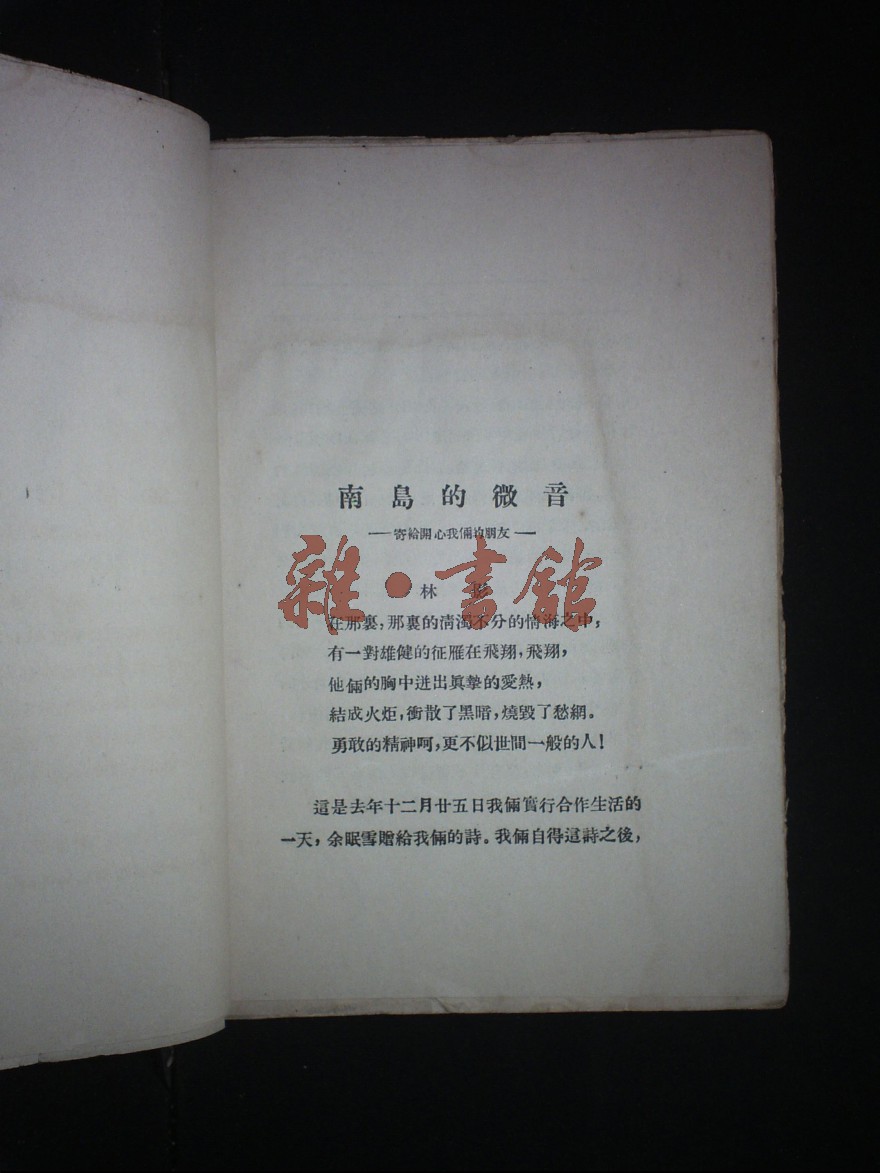 南島的微音
——寄給開心我倆的朋友——
林
雜·書館
在那裏，那裏的清濁不分的情海之中，
有一對雄健的征雁在飛翔，飛翔，
他倆的胸中迸出眞摯的愛熱，
結成火炬，衝散了黑暗，燒毀了愁網。
勇敢的精神呵，更不似世間一般的人！
這是去年十二月廿五日我倆實行合作生活的
一天，余眠雪贈給我倆的詩。我倆自得這詩之後，